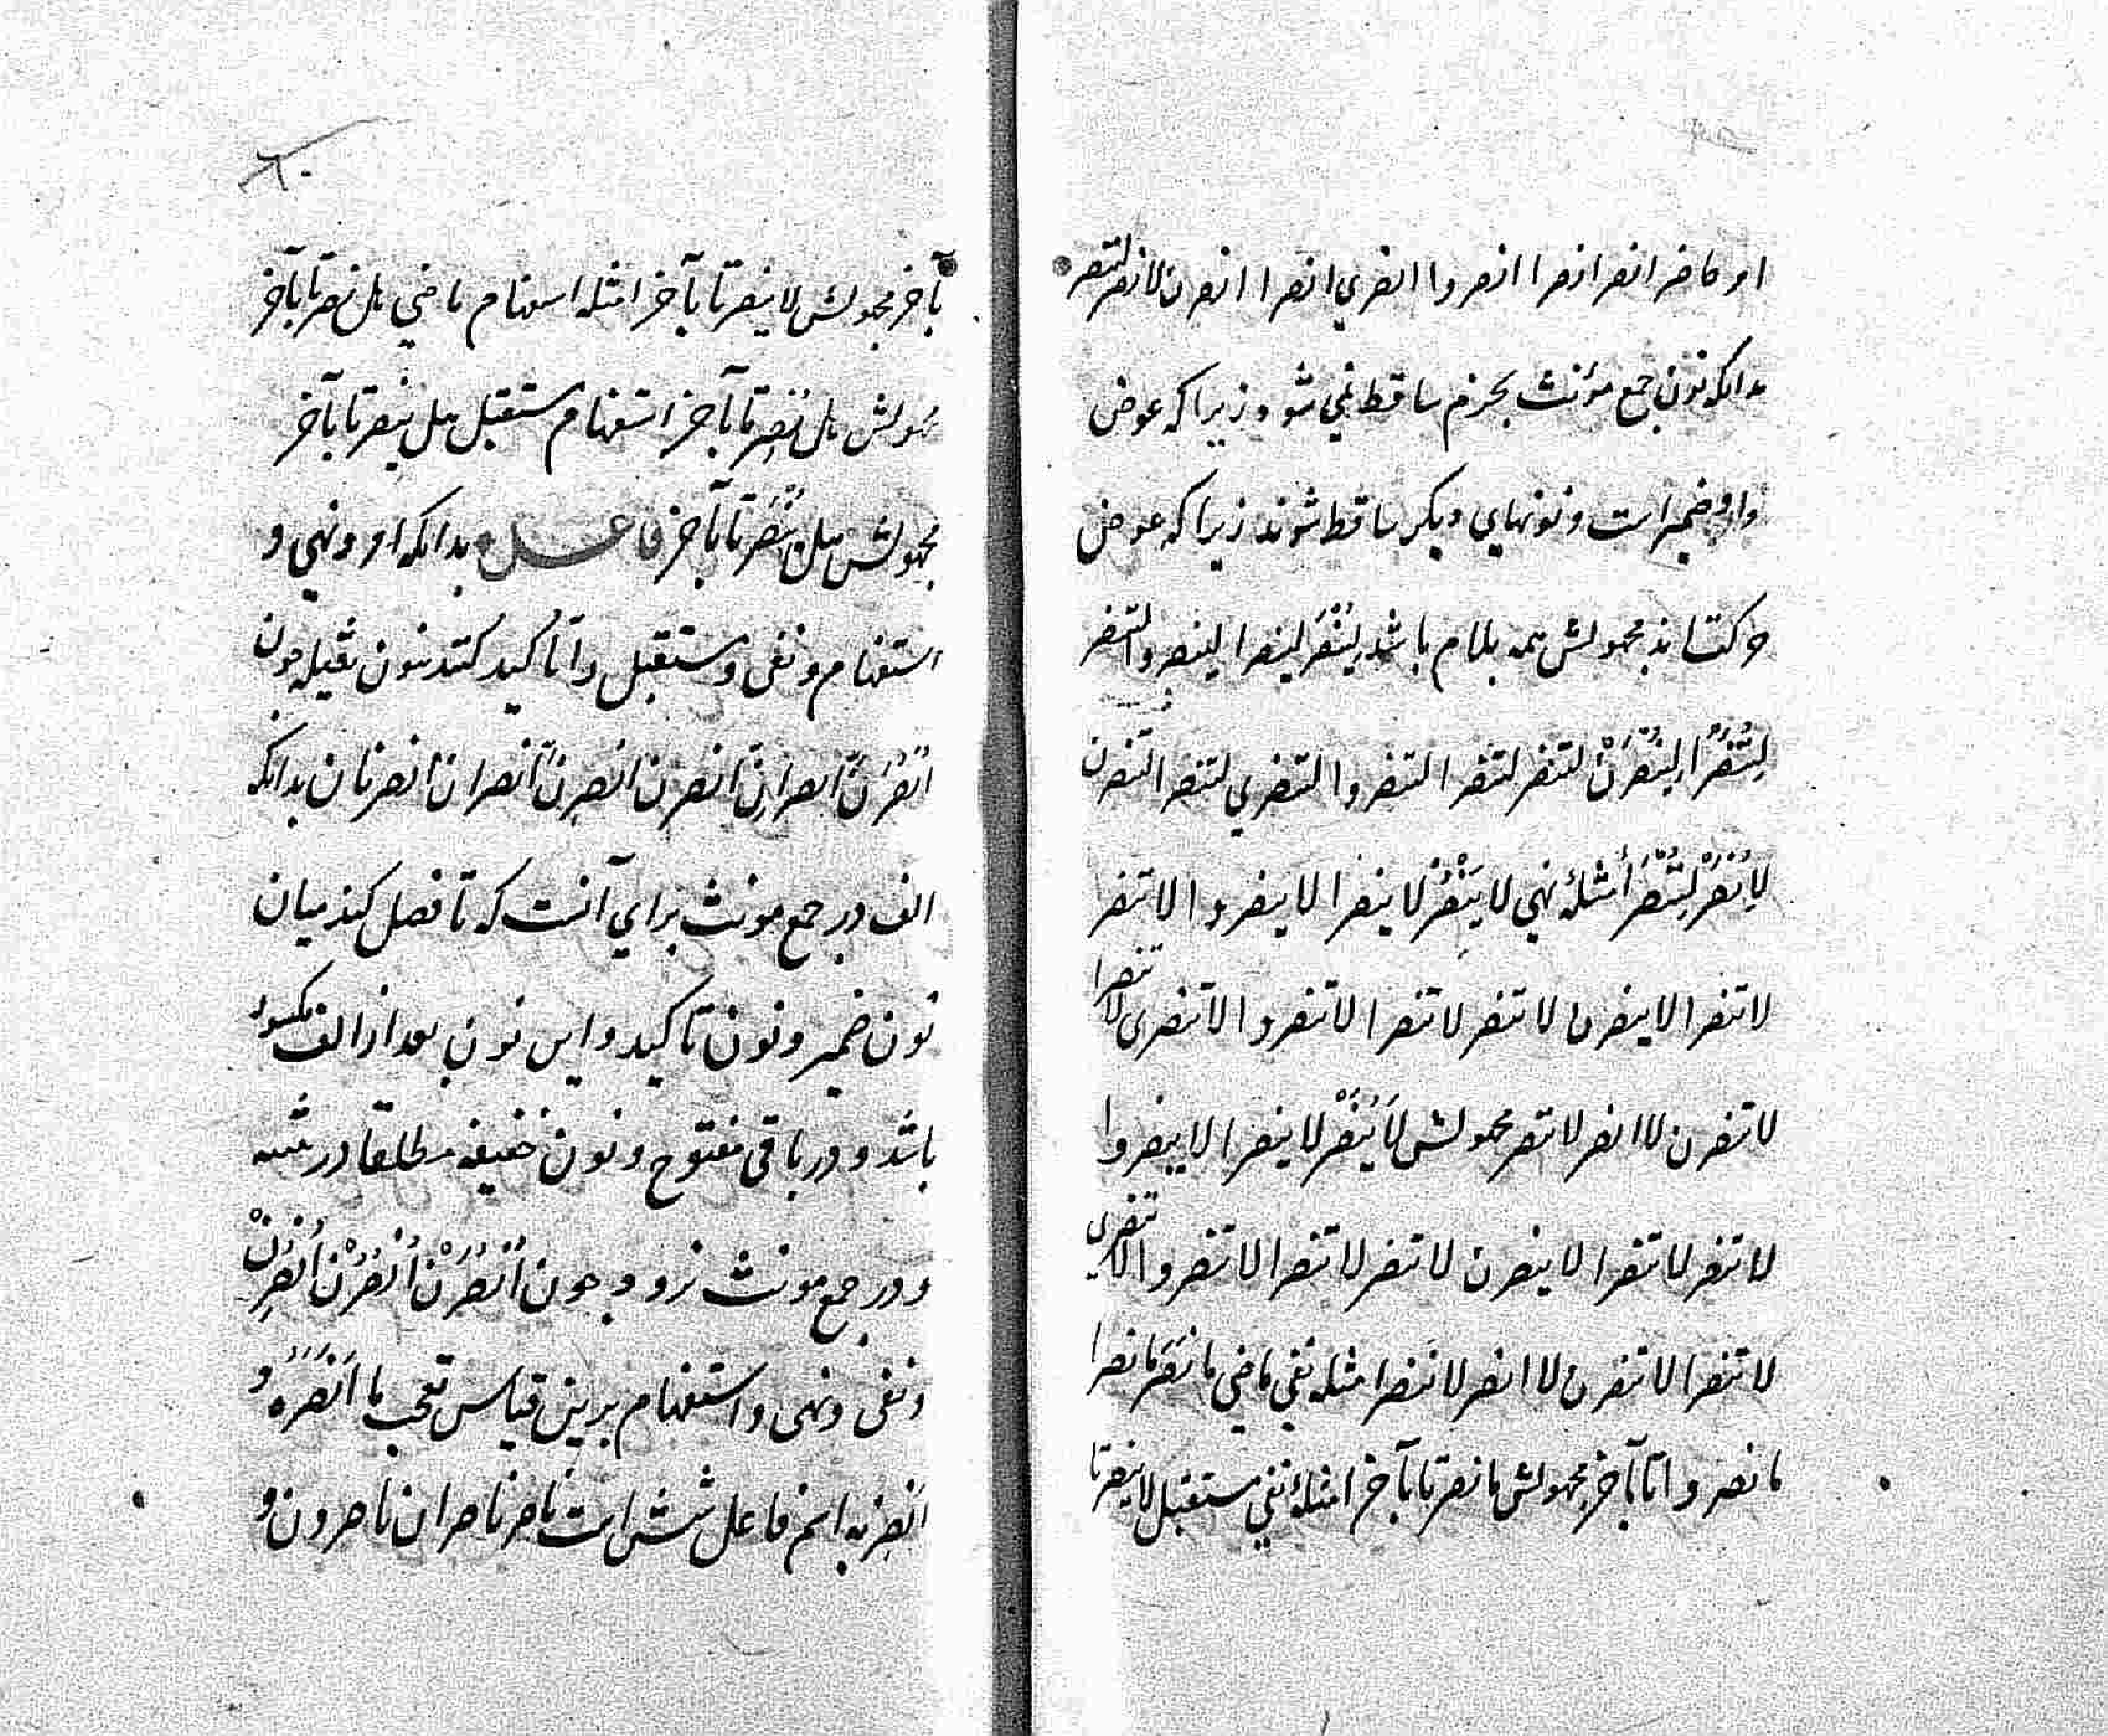 امر حاضر انصر انصرا انصروا انصري انصرا انصرن لانصر لننصر
بدانكه نون جمع مؤنث بجزم ساقط نمي شود زيرا كه عوض
واو ضمير است و نونهاي ديكر ساقط شوند زيرا كه عوض
حركتاند مجهولش همه بلام باشد لِيُنْصَر لينصرا لينصروا لتنصر
لِتُنْصَرَا لِيُنْصَرْنَ لتنصر لتنصرا لتنصروا لتنصري لتنصرا لتنصرن
لِاُنْصَرْ لِنُنْصَرْ أمثلهٔ نهي لا يَنْصُرْ لا ينصرا لا ينصروا لا تنصر
لا تنصرا لا ينصرن لا تنصر لا تنصرا لا تنصروا لا تنصرى لا تنصرا
لا تنصرن لا انصر لا ننصر مجهولش لَا يُنْصَرْ لا ينصرا لا ينصروا
لا تنصر لا تنصرا لا ينصرن لا تنصر لا تنصرا لا تنصروا لا تنصرى
لا تنصرا لا تنصرن لا انصر لا ننصر امثله نفي ماضي ما نَصَرَ ما نصرا
ما نصروا تا بآخر مجهولش ما نصر تا بآخر امثلهٔ نفي مستقبل لا ينصر تا
بآخر مجهولش لا ينصر تا بآخر امثله استفهام ماضي هل نصر تا بآخر
مجهولش هل نُصِرَ تا بآخر استفهام مستقبل هل ينصر تا بآخر
مجهولش هل يُنْصَرُ تا بآخر فاعــل بدانكه امر و نهي و
استفهام و نفى و مستقبل را تأكيد كنند بنون ثقيله چون
اُنْصُرَنَّ انصرانِّ انصرنَّ انصرنَّ انصران انصرنان بدانكه
الف در جمع مونث براي آنست كه تا فصل كند ميان
نون ضمير و نون تاكيد و اين نون بعد از الف مكسور
باشد و در باقى مفتوح و نون خفيفه مطلقا در تثنيه
و در جمع مونث نرود چون اُنْصُرَنْ اُنْصُرُنْ اُنْصُرِنْ
و نفى و نهى و استفهام برين قياس تعجب ما اَنْصَرَهُ و
اَنْصِرْ به اسم فاعل شش است ناصر ناصران ناصرون و